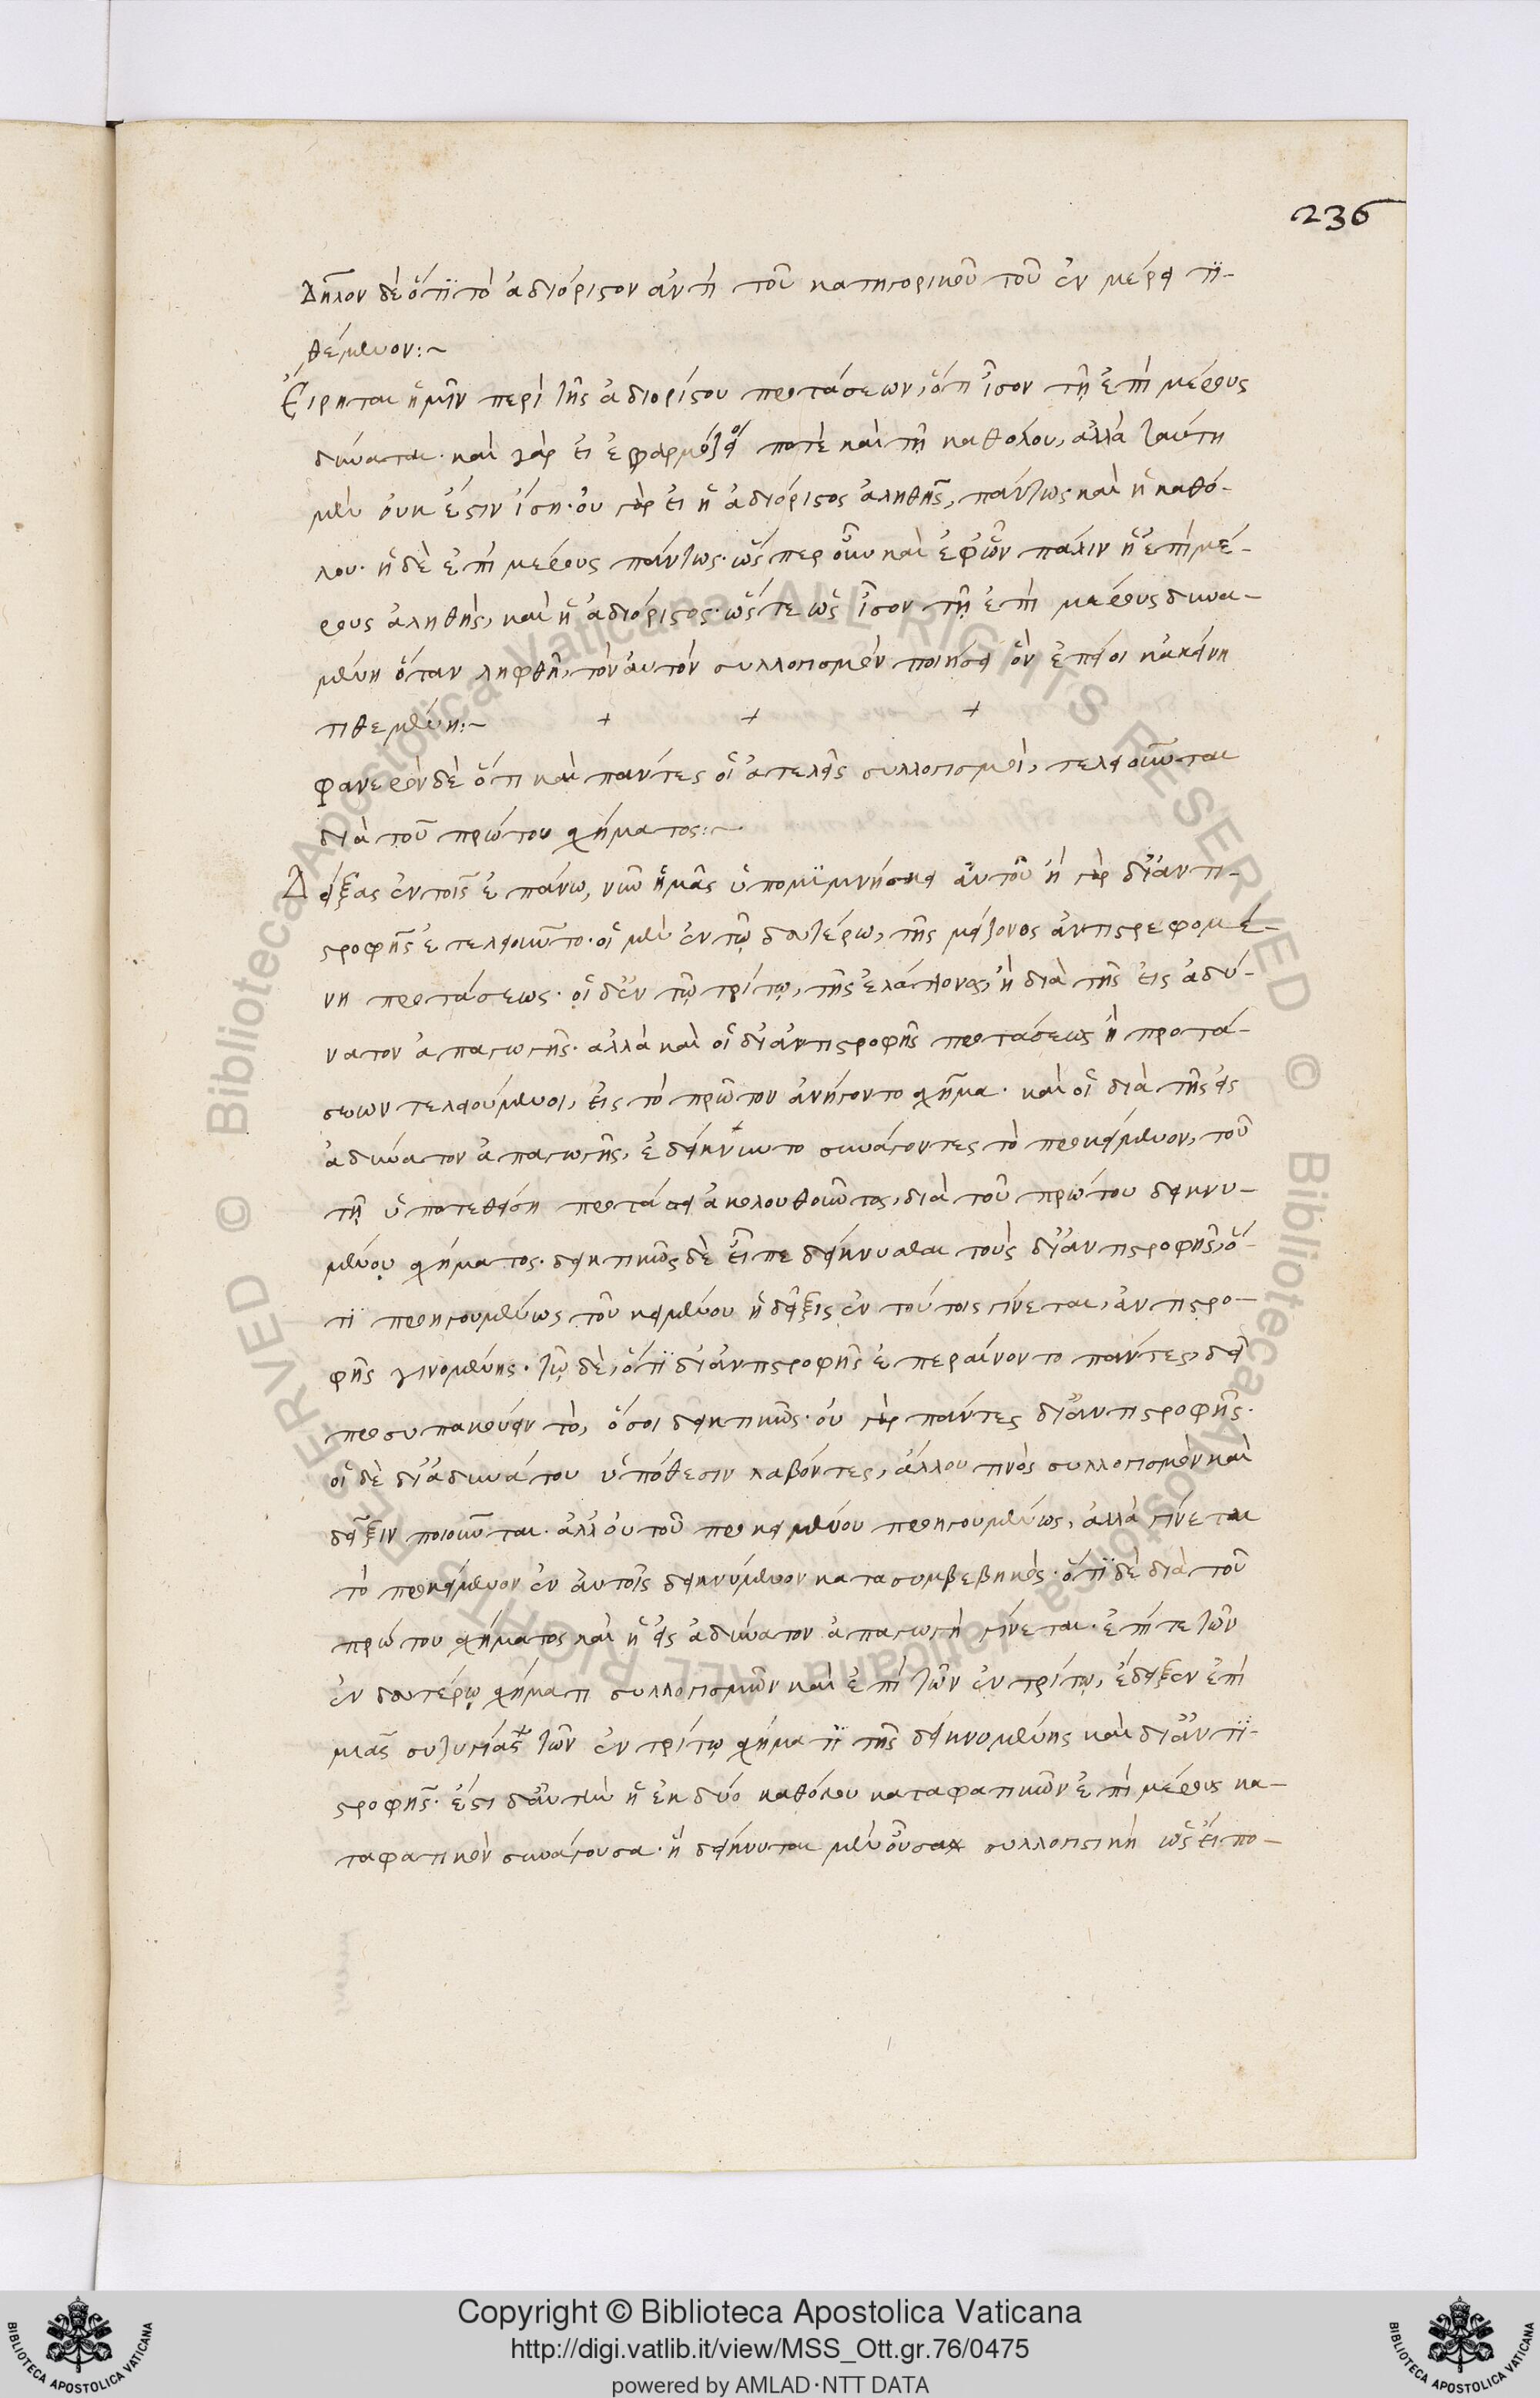 236
Δῆλον δὲ ὅτι τὸ ἀδιόριστον ἀντὶ τοῦ κατηγορικοῦ τοῦ ἐν μέρει τι-
θέμενον:~
Εἴρηται ἡμῖν περὶ τῆς ἀδιορίστου προτάσεων, ὅτι ἶσον τῇ ἐπὶ μέρους
δύναται. καὶ γὰρ εἰ ἐφαρμόζοι ποτὲ καὶ τῇ καθόλου, ἀλλὰ ταύτῃ
μὲν οὐκ ἔστιν ἴση. οὐ γὰρ εἰ ἡ ἀδιόριστος ἀληθὴς, πάντως καὶ ἡ καθό-
λου. ἡ δὲ ἐπὶ μέρους πάντως. ὥσπερ οὖν καὶ ἐφ' ὧν πάλιν ἡ ἐπὶ μέ-
ρους ἀληθὴς, καὶ ἡ ἀδιόριστος. ὥστε ὡς ἶσον τῇ ἐπὶ μέρους δυνα-
μένη ὅταν ληφθῇ, τὸν αὐτὸν συλλογισμὸν ποιήσει ὃν ἐποίει κἀκείνη
τιθεμένη:~ + + +
φανερὸν δὲ ὅτι καὶ πάντες οἱ ἀτελεῖς συλλογισμοὶ, τελειοῦνται
διὰ τοῦ πρώτου σχήματος:~
Δείξας ἐν τοῖς ἐπάνω, νῦν ἡμᾶς ὑπομιμνήσκει αὐτοῦ ἢ γὰρ δι' ἀντι-
στροφῆς ἐτελειοῦντο. οἱ μὲν ἐν τῷ δευτέρω, τῆς μείζονος ἀντιστρεφομέ-
νη προτάσεως. οἱ δ' ἐν τῷ τρίτῳ, τῆς ἐλάττονος, ἢ διὰ τῆς εἰς ἀδύ-
νατον ἀπαγωγῆς. ἀλλὰ καὶ οἱ δι' ἀντιστροφῆς προτάσεως ἢ προτά-
σεων τελειούμενοι, εἰς τὸ πρῶτον ἀνήγοντο σχῆμα. καὶ οἱ διὰ τῆς εἰς
ἀδύνατον ἀπαγωγῆς, ἐδείκνυντο συνάγοντες τὸ προκείμενον, τοῦ
τῇ ὑποτεθείσῃ προτάσει ἀκολουθοῦντος, διὰ τοῦ πρώτου δεικνυ-
μένου σχήματος. δεικτικῶς δὲ εἶπε δείκνυσθαι τοὺς δι' ἀντιστροφῆς, ὅ-
τι προηγουμένως τοῦ κειμένου ἡ δεῖξις ἐν τούτοις γίνεται, ἀντιστρο-
φῆς γινομένης. τῷ δὲ, ὅτι δι' ἀντιστροφῆς ἐπεραίνοντο πάντες, δεῖ
προσυπακούειν τὸ, ὅσοι δεικτικῶς. οὐ γὰρ πάντες δι' ἀντιστροφῆς.
οἱ δὲ δι' ἀδυνάτου ὑπόθεσιν λαβόντες, ἄλλου τινὸς συλλογισμὸν καὶ
δεῖξιν ποιοῦνται. ἀλλ' οὐ τοῦ προκειμένου προηγουμένως, ἀλλὰ γίνεται
τὸ προκείμενον ἐν αὐτοῖς δεικνύμενον κατασυμβεβηκὸς. ὅτι δὲ διὰ τοῦ
πρώτου σχήματος καὶ ἡ εἰς ἀδύνατον ἀπαγωγὴ γίνεται. ἐπί τε τῶν
ἐν δευτέρῳ σχήματι συλλογισμῶν καὶ ἐπὶ τῶν ἐν τρίτῳ, ἔδειξεν ἐπὶ
μιᾶς συζυγίας τῶν ἐν τρίτῳ σχήματι τῆς δεικνομένης καὶ δι' ἀντι-
στροφῆς. ἔστι δ' αὕτη ἡ ἐκ δύο καθόλου καταφατικῶν ἐπὶ μέρους κα-
ταφατικὸν συνάγουσα. ἡ δείκνυται μὲν οὖσα συλλογιστικὴ ὡς εἶπο-
Copyright © Biblioteca Apostolica Vaticana
http://digi.vatlib.it/view/MSS_Ott.gr.76/0475
powered by AMLAD·NTT DATA